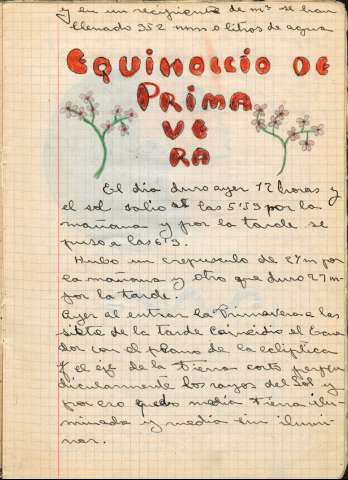 y en un recipiente de m³ se han
llenado 352 mm o litros de agua
EQUINOCCIO DE
PRIMA
VE
RA
El día duro ayer 12 horas y
el sol salio a las 5'59 por la
mañana y por la tarde se
puso a las 6'9.
Hubo un crepusculo de 27 m por
la mañana y otro que duro 27 m
por la tarde.
Ayer al entrar la Primavera a las
siete de la tarde coincidio el Ecua
dor con el plano de la ecliptica
y el eje de la tierra corto perpen
dicularmente los rayos del Sol y
por eso quedo media tierra ilu-
minada y media sin ilumi-
nar.